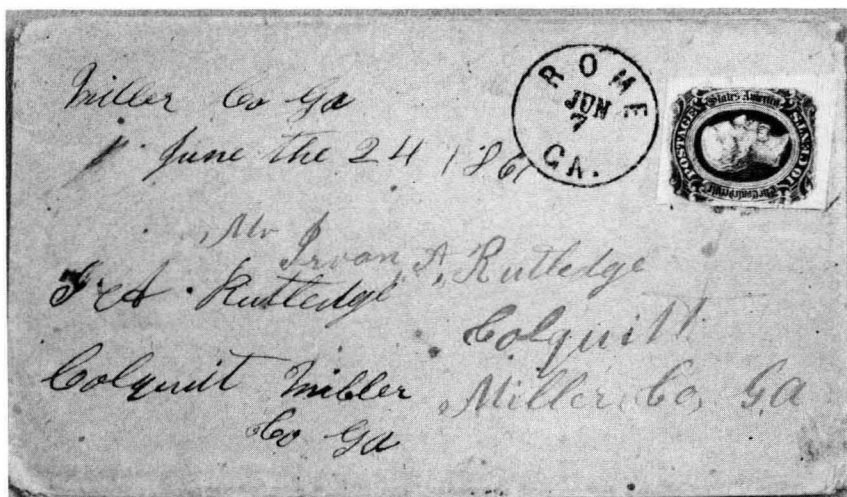 Miller Co Ga
June the 24 1861
ROME
JUN
7
GA.
POSTAGE
TEN CENTS
Mr Irvan A, Rutledge
Colquitt
Miller, Co, GA
I A Rutledge
Colquitt Miller
Co Ga